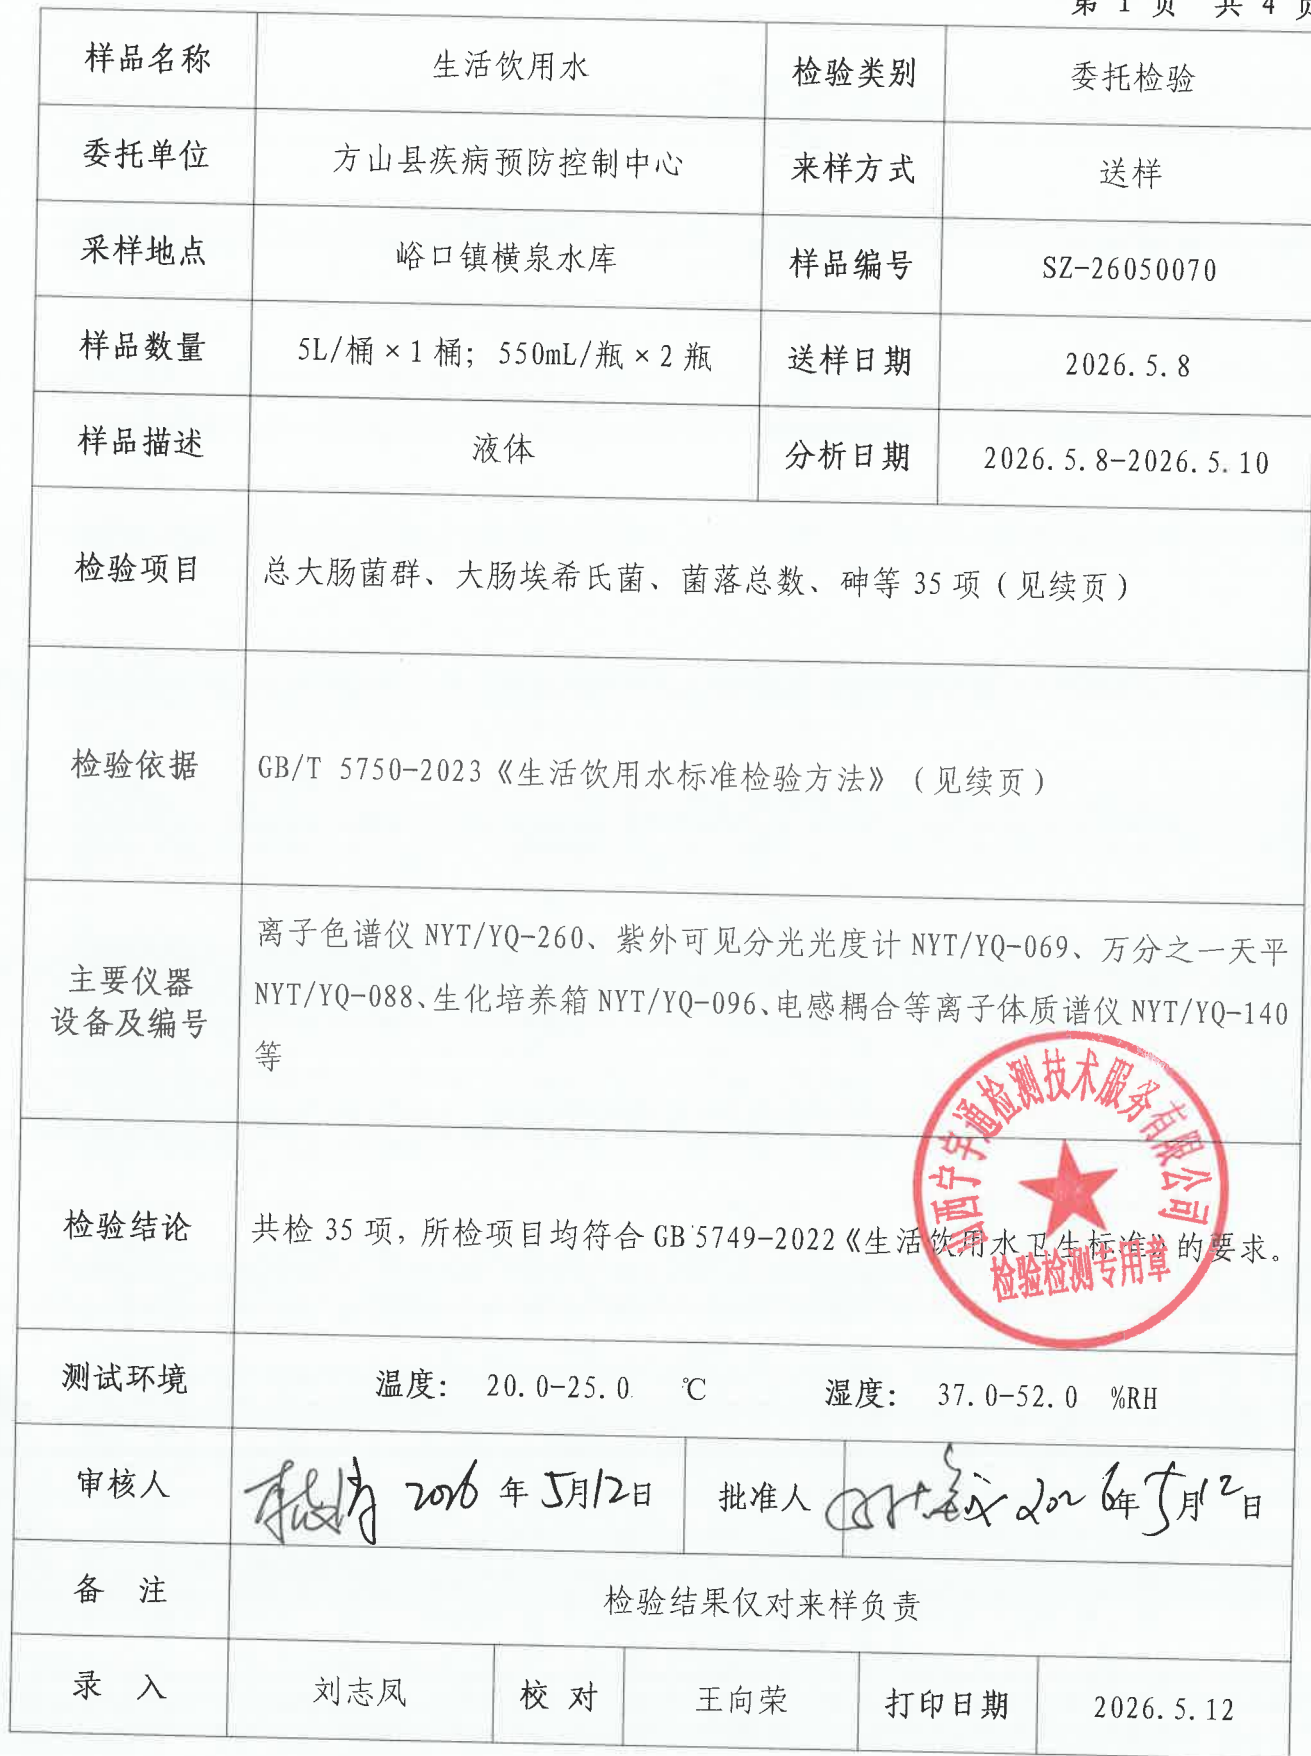 第 1 页 共 4 页
样品名称 生活饮用水 检验类别 委托检验
委托单位 方山县疾病预防控制中心 来样方式 送样
采样地点 峪口镇横泉水库 样品编号 SZ-26050070
样品数量 5L/桶×1桶；550mL/瓶×2瓶 送样日期 2026.5.8
样品描述 液体 分析日期 2026.5.8-2026.5.10
检验项目 总大肠菌群、大肠埃希氏菌、菌落总数、砷等 35 项（见续页）
检验依据 GB/T 5750-2023《生活饮用水标准检验方法》（见续页）
主要仪器
设备及编号
离子色谱仪 NYT/YQ-260、紫外可见分光光度计 NYT/YQ-069、万分之一天平
NYT/YQ-088、生化培养箱 NYT/YQ-096、电感耦合等离子体质谱仪 NYT/YQ-140
等
山西宁宇通检测技术服务有限公司
检验检测专用章
检验结论 共检 35 项，所检项目均符合 GB 5749-2022《生活饮用水卫生标准》的要求。
测试环境 温度： 20.0-25.0 ℃ 湿度： 37.0-52.0 %RH
审核人 2026 年 5月12日 批准人 2026年5月12日
备 注 检验结果仅对来样负责
录 入 刘志凤 校 对 王向荣 打印日期 2026.5.12